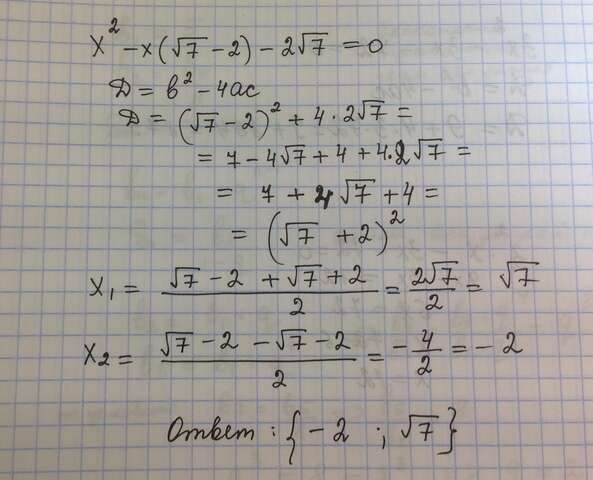 x² - x(√7 - 2) - 2√7 = 0
D = b² - 4ac
D = (√7 - 2)² + 4 · 2√7 =
= 7 - 4√7 + 4 + 4·2√7 =
= 7 + 4√7 + 4 =
= (√7 + 2)²
x₁ = (√7 - 2 + √7 + 2)/2 = 2√7/2 = √7
x₂ = (√7 - 2 - √7 - 2)/2 = -4/2 = -2
Ответ: {-2 ; √7}